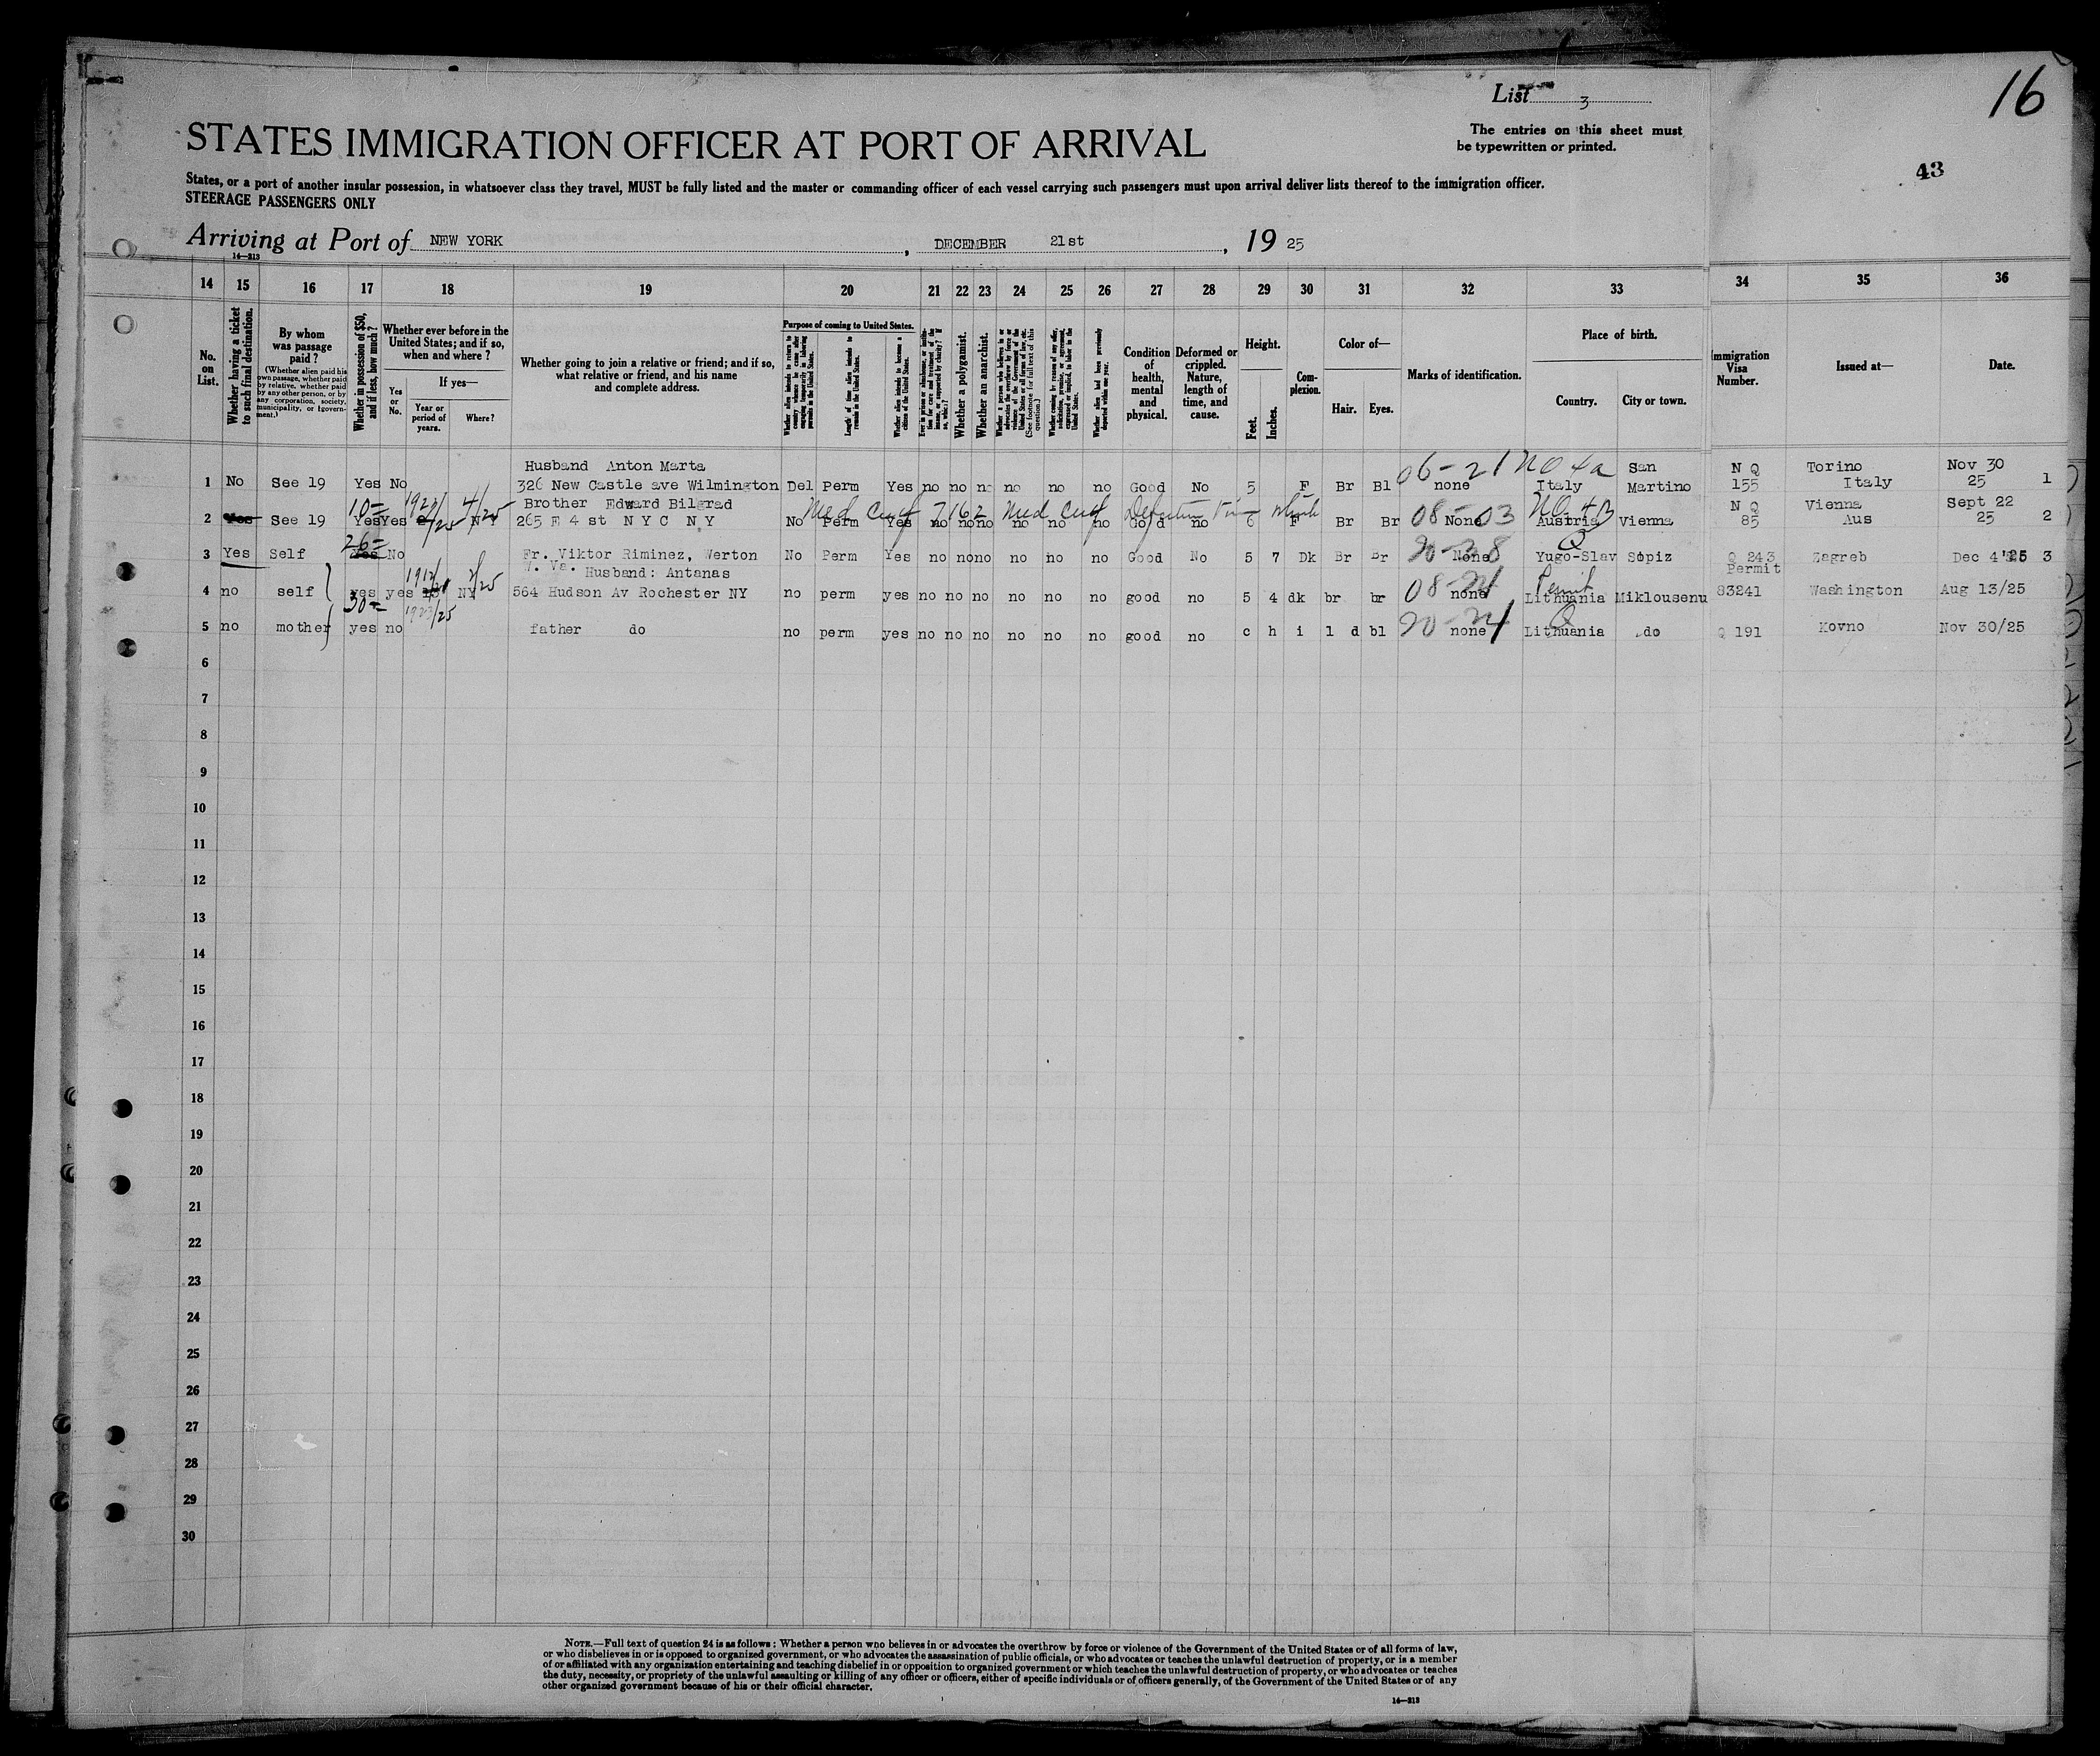 16
List 3
The entries on this sheet must
be typewritten or printed.
43
STATES IMMIGRATION OFFICER AT PORT OF ARRIVAL
States, or a port of another insular possession, in whatsoever class they travel, MUST be fully listed and the master or commanding officer of each vessel carrying such passengers must upon arrival deliver lists thereof to the immigration officer.
STEERAGE PASSENGERS ONLY
Arriving at Port of NEW YORK, DECEMBER 21st, 19 25
14—213
14 15 16 17 18 19 20 21 22 23 24 25 26 27 28 29 30 31 32 33 34 35 36
No. on List.
Whether having a ticket to such final destination.
By whom was passage paid?
(Whether alien paid his own passage, whether paid by relative, whether paid by any other person, or by any corporation, society, municipality, or government.)
Whether in possession of $50, and if less, how much?
Whether ever before in the United States; and if so, when and where?
Yes or No.
If yes—
Year or period of years.
Where?
Whether going to join a relative or friend; and if so, what relative or friend, and his name and complete address.
Purpose of coming to United States.
Length of time alien intends to remain in the United States.
Whether alien intends to become a citizen of the United States.
Whether a polygamist.
Whether an anarchist.
(See footnote for full text of this question.)
Condition of health, mental and physical.
Deformed or crippled. Nature, length of time, and cause.
Height.
Feet.
Inches.
Complexion.
Color of—
Hair.
Eyes.
Marks of identification.
Place of birth.
Country.
City or town.
Immigration Visa Number.
Issued at—
Date.
Husband Anton Marta San N Q Torino Nov 30
1 No See 19 Yes No 326 New Castle ave Wilmington Del Perm Yes no no no no no no Good No 5 F Br Bl 06-21 none Italy Martino 155 Italy 25 1
10= 1921 4/25 Brother Edward Bilgrad Med Cert 7162 Med Cert N Q Vienna Sept 22
2 Yes See 19 Yes Yes N Y 265 E 4 st N Y C N Y No Perm Yes no no no no no no Good no 6 F Br Br 08-03 None Austria Vienna 85 Aus 25 2
26= Q
3 Yes Self Yes No Fr. Viktor Riminez, Werton No Perm Yes no no no no no no Good No 5 7 Dk Br Br None Yugo-Slav Sopiz Q 243 Zagreb Dec 4'25 3
W. Va. Husband: Antanas Permit Permit
4 no self yes yes NY 564 Hudson Av Rochester NY no perm yes no no no no no no good no 5 4 dk br br none Lithuania Miklousenu 83241 Washington Aug 13/25
30= 1923/25 Q
5 no mother yes no father do no perm yes no no no no no no good no c h i l d bl none Lithuania do Q 191 Kovno Nov 30/25
6
7
8
9
10
11
12
13
14
15
16
17
18
19
20
21
22
23
24
25
26
27
28
29
30
NOTE.—Full text of question 24 is as follows: Whether a person who believes in or advocates the overthrow by force or violence of the Government of the United States or of all forms of law,
or who disbelieves in or is opposed to organized government, or who advocates the assassination of public officials, or who advocates or teaches the unlawful destruction of property, or is a member
of or affiliated with any organization entertaining and teaching disbelief in or opposition to organized government or which teaches the unlawful destruction of property, or who advocates or teaches
the duty, necessity, or propriety of the unlawful assaulting or killing of any officer or officers, either of specific individuals or of officers generally, of the Government of the United States or of any
other organized government because of his or their official character.
14—213